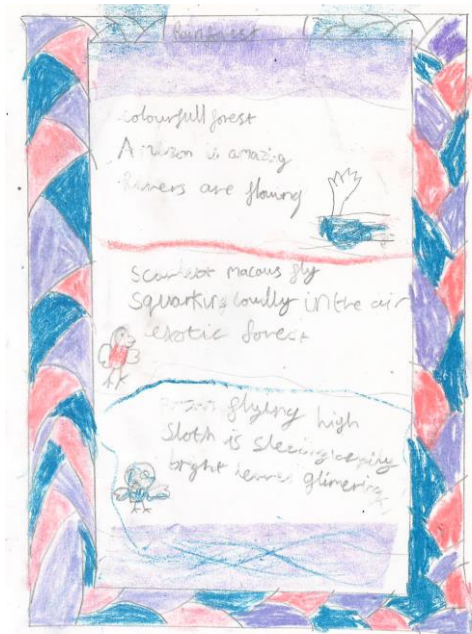 Rainforest
colourfull forest
Amazon is amazig
Rivers are flowing
Scarlet macaus fly
Squarking loudly in the air
exotic forest
flying high
Sloth is
bright leaves glimering